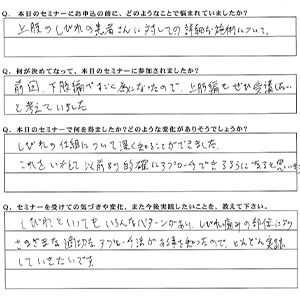 Q. 本日のセミナーにお申込の前に、どのようなことで悩まれていましたか?
上肢のしびれの患者さんに対しての詳細な施術について。
Q. 何が決めてなって、本日のセミナーに参加されましたか?
前回、下肢編ですごく為になったので、上肢編もぜひ受講したい
と考えていました
Q. 本日のセミナーで何を得ましたか?どのような変化がありそうでしょうか?
しびれの仕組について深く知ることができました。
これをいかして以前より的確にアプローチできるようになると思います
Q. セミナーを受けての気づきや変化、また今後実践したいことを、教えて下さい。
しびれといってもいろんなパターンがあり、しびれ痛みの部位により
さまざまな適切なアプローチ法がある事を知ったので、どんどん実践
していきたいです。